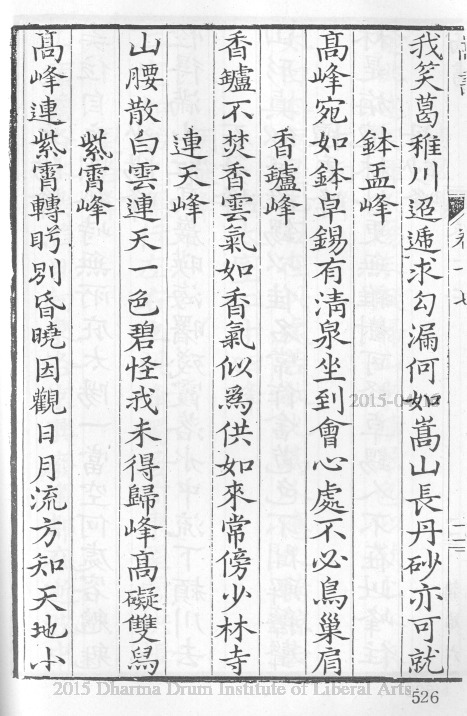 我笑葛稚川迢遞求勾漏何如嵩山長丹砂亦可就
鉢盂峰
髙峰宛如鉢卓錫有清泉坐到會心處不必鳥巢肩
香鑪峰
香鑪不焚香雲氣如香氣似為供如來常傍少林寺
連天峰
山腰散白雲連天一色碧怪我未得歸峰髙礙雙舄
紫霄峰
髙峰連紫霄轉盻別昏曉因觀日月流方知天地小
2015 Dharma Drum Institute of Liberal Arts
526